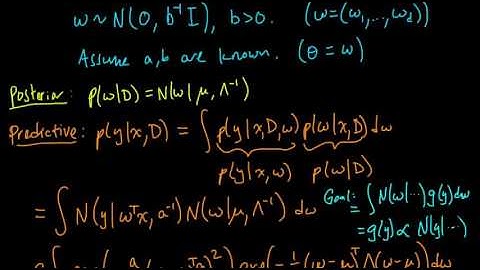 w ~ N(0, b⁻¹I), b>0. (w=(w₁,...,w_d))
Assume a,b are known. (θ = w)
Posterior: p(w|D) = N(w|μ, Λ⁻¹)
Predictive: p(y|x,D) = ∫ p(y|x,D,w) p(w|x,D) dw
p(y|x,w) p(w|D)
= ∫ N(y|wᵀx, a⁻¹) N(w|μ, Λ⁻¹) dw
Goal: = ∫ N(w|...) g(y) dw
= g(y) ∝ N(y|...)